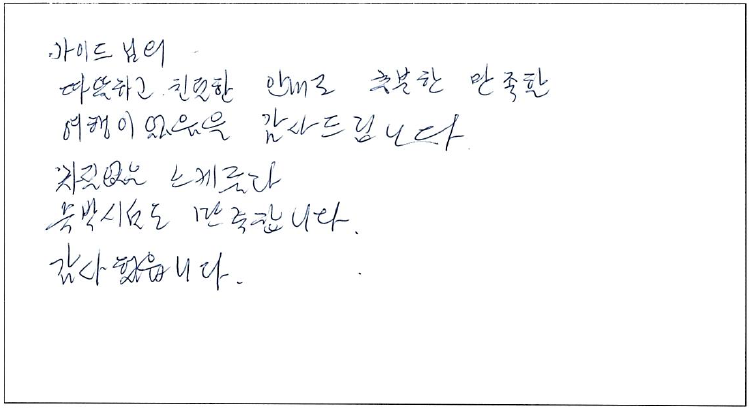 가이드님의
따뜻하고 친절한 안내로 충분한 만족한
여행이 었음을 감사드립니다.
차질없은 스케쥴과
숙박시설도 만족합니다.
감사했읍니다.